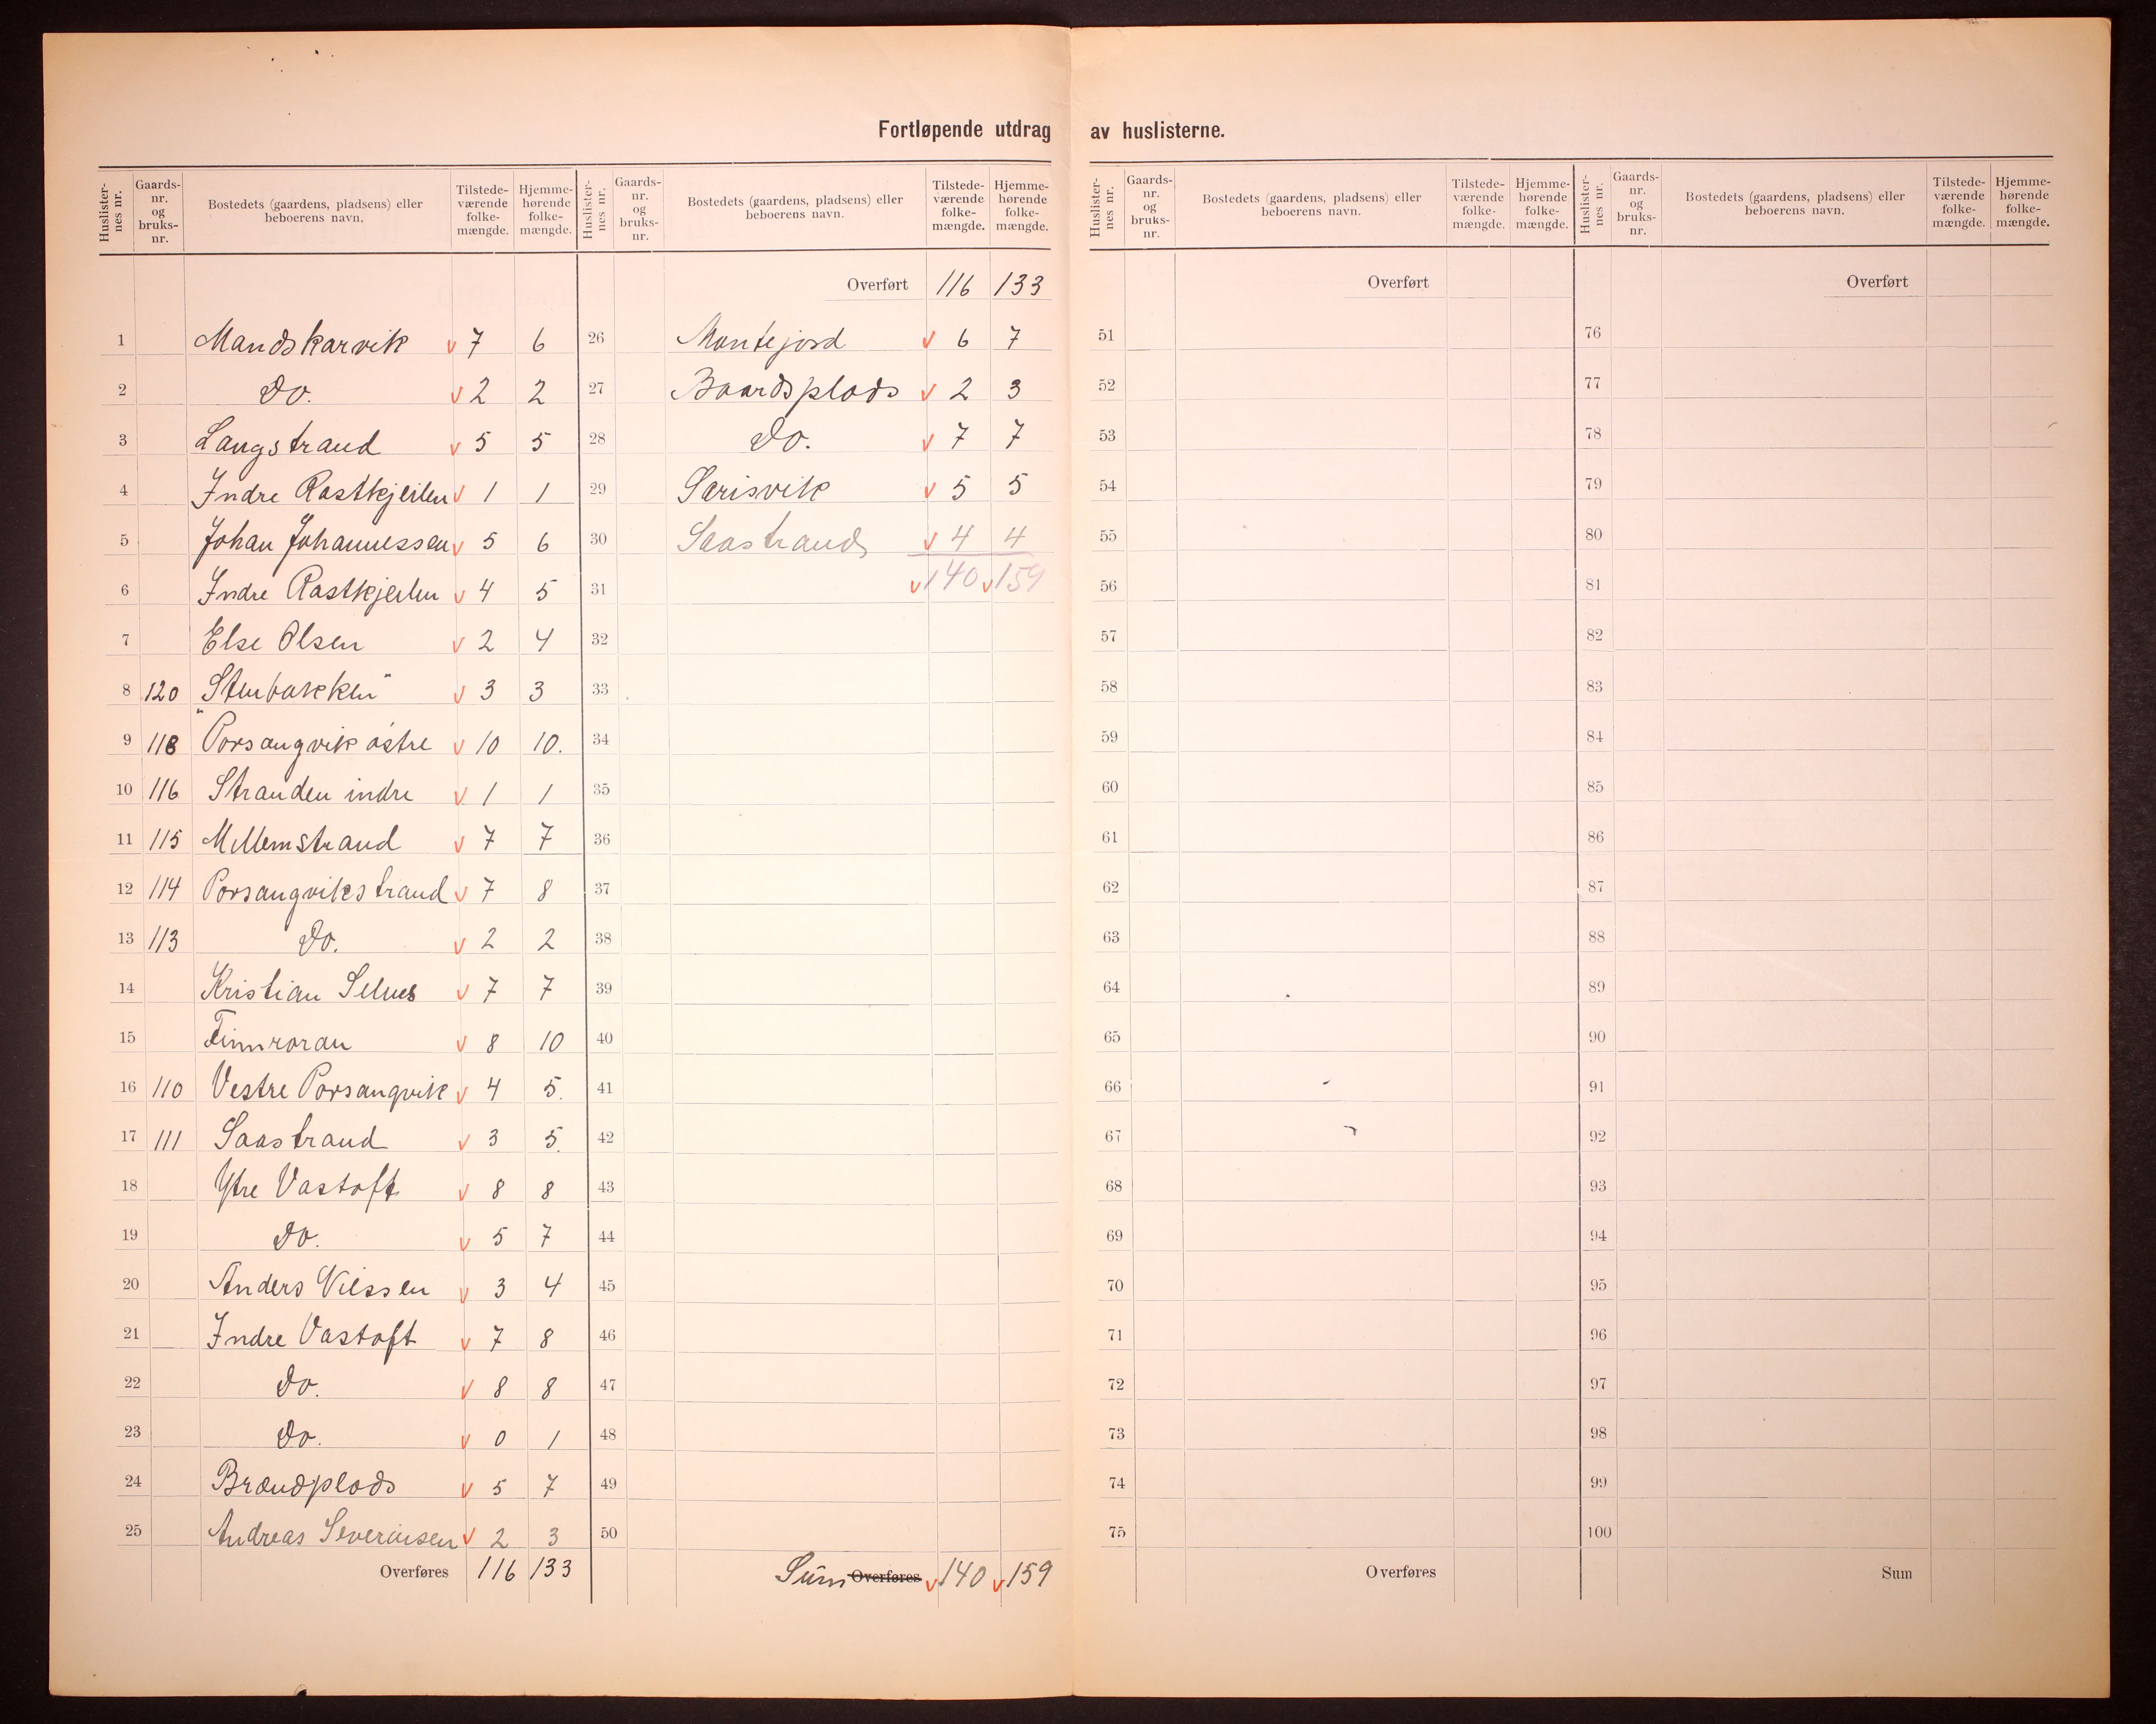 Fortløpende utdrag av huslisterne.
Huslisternes nr. Gaards-nr. og bruks-nr. Bostedets (gaardens, pladsens) eller beboerens navn. Tilstedeværende folkemængde. Hjemmehørende folkemængde.
1 Mandskarvik v 7 6
2 Do. v 2 2
3 Langstrand v 5 5
4 Indre Rastkjeilen v 1 1
5 Johan Johannessen v 5 6
6 Indre Rastkjeilen v 4 5
7 Else Olsen v 2 4
8 120 "Stenbakken" v 3 3
9 118 Porsangvik østre v 10 10.
10 116 Stranden indre v 1 1
11 115 Mellemstrand v 7 7
12 114 Porsangvikstrand v 7 8
13 113 Do. v 2 2
14 Kristian Selnes v 7 7
15 Finnroran v 8 10
16 110 Vestre Porsangvik v 4 5.
17 111 Saastrand v 3 5.
18 Ytre Vastoft v 8 8
19 Do. v 5 7
20 Anders Nilssen v 3 4
21 Indre Vastoft v 7 8
22 Do. v 8 8
23 Do. v 0 1
24 Brandplads v 5 7
25 Andreas Severinsen v 2 3
Overføres 116 133
Huslisternes nr. Gaards-nr. og bruks-nr. Bostedets (gaardens, pladsens) eller beboerens navn. Tilstedeværende folkemængde. Hjemmehørende folkemængde.
Overført 116 133
26 Montejord v 6 7
27 Baardsplads v 2 3
28 Do. v 7 7
29 Sarisvik v 5 5
30 Saastrand v 4 4
31 v 140 v 159
32
33
34
35
36
37
38
39
40
41
42
43
44
45
46
47
48
49
50
Sum Overføres v 140 v 159
Huslisternes nr. Gaards-nr. og bruks-nr. Bostedets (gaardens, pladsens) eller beboerens navn. Tilstedeværende folkemængde. Hjemmehørende folkemængde.
Overført
51
52
53
54
55
56
57
58
59
60
61
62
63
64
65
66
67
68
69
70
71
72
73
74
75
Overføres
Huslisternes nr. Gaards-nr. og bruks-nr. Bostedets (gaardens, pladsens) eller beboerens navn. Tilstedeværende folkemængde. Hjemmehørende folkemængde.
Overført
76
77
78
79
80
81
82
83
84
85
86
87
88
89
90
91
92
93
94
95
96
97
98
99
100
Sum